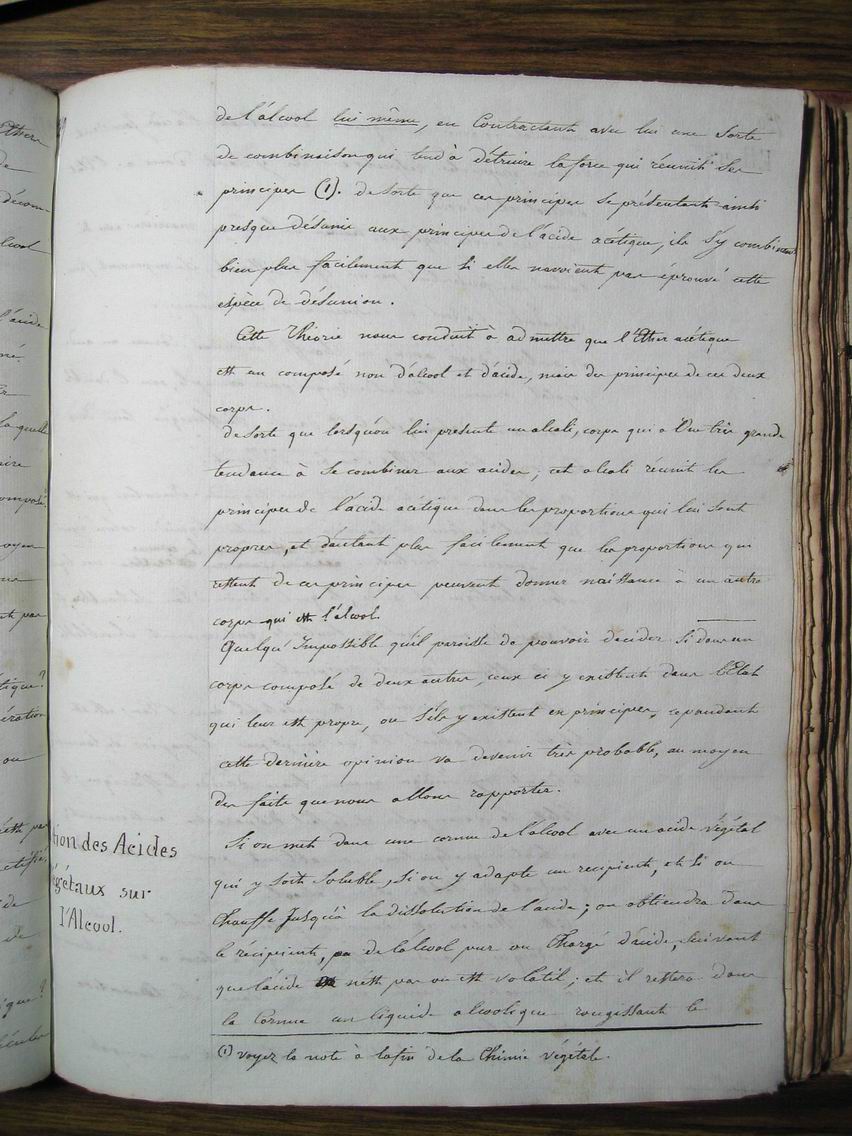 Ether
de
décom-
lcool
l'acide
né.
la quelle
aire
omposé
oyen
ent par
tique?
ération
ou
de
ique?
de l'álcool lui même, en Contractant avec lui une Sorte
de combinaison qui tend à détruire la force qui réunit Ses
principes (1). de Sorte que ces principes se présentant ainsi
presque désunis aux principes de l'ácide acétique, ils S'y combinent
bien plus facilement que Si elles n'avoient pas éprouvé cette
espèce de désunion.
Cette théorie nous conduit à admettre que l'Ether acétique
est un composé non d'álcool et d'ácide, mais des principes de ces deux
corps.
de Sorte que lorsqu'on lui présente un alcali, corps qui a Une très grande
tendance à Se combiner aux acides; cet alcali réunit les
principes de l'ácide acétique dans les proportions qui lui Sont
propres, et d'autant plus facilement que les proportions qui
restent de ces principes peuvent donner naissance à un autre
corps qui est l'álcool.
Quelqu'Impossible qu'il paroisse de pouvoir décider Si dans un
corps composé de deux autres, ceux ci y existent dans l'Etat
qui leur est propre, ou S'ils y existent en principes, cependant
cette dernière opinion va devenir très probable, au moyen
des faits que nous allons rapporter.
tion des Acides
égétaux sur
l'Alcool.
Si on met dans une cornue de l'álcool avec un acide végétal
qui y Soit Soluble, Si on y adapte un recipient, et Si on
Chauffe Jusqu'à la dissolution de l'acide; on obtiendra dans
le récipient, de l'álcool pur ou Chargé d'ácide, Suivant
que l'ácide n'est pas ou est volatil; et il restera dans
la Cornue un liquide alcoolique rougissant le
(1) voyez la note à la fin de la Chimie végétale.